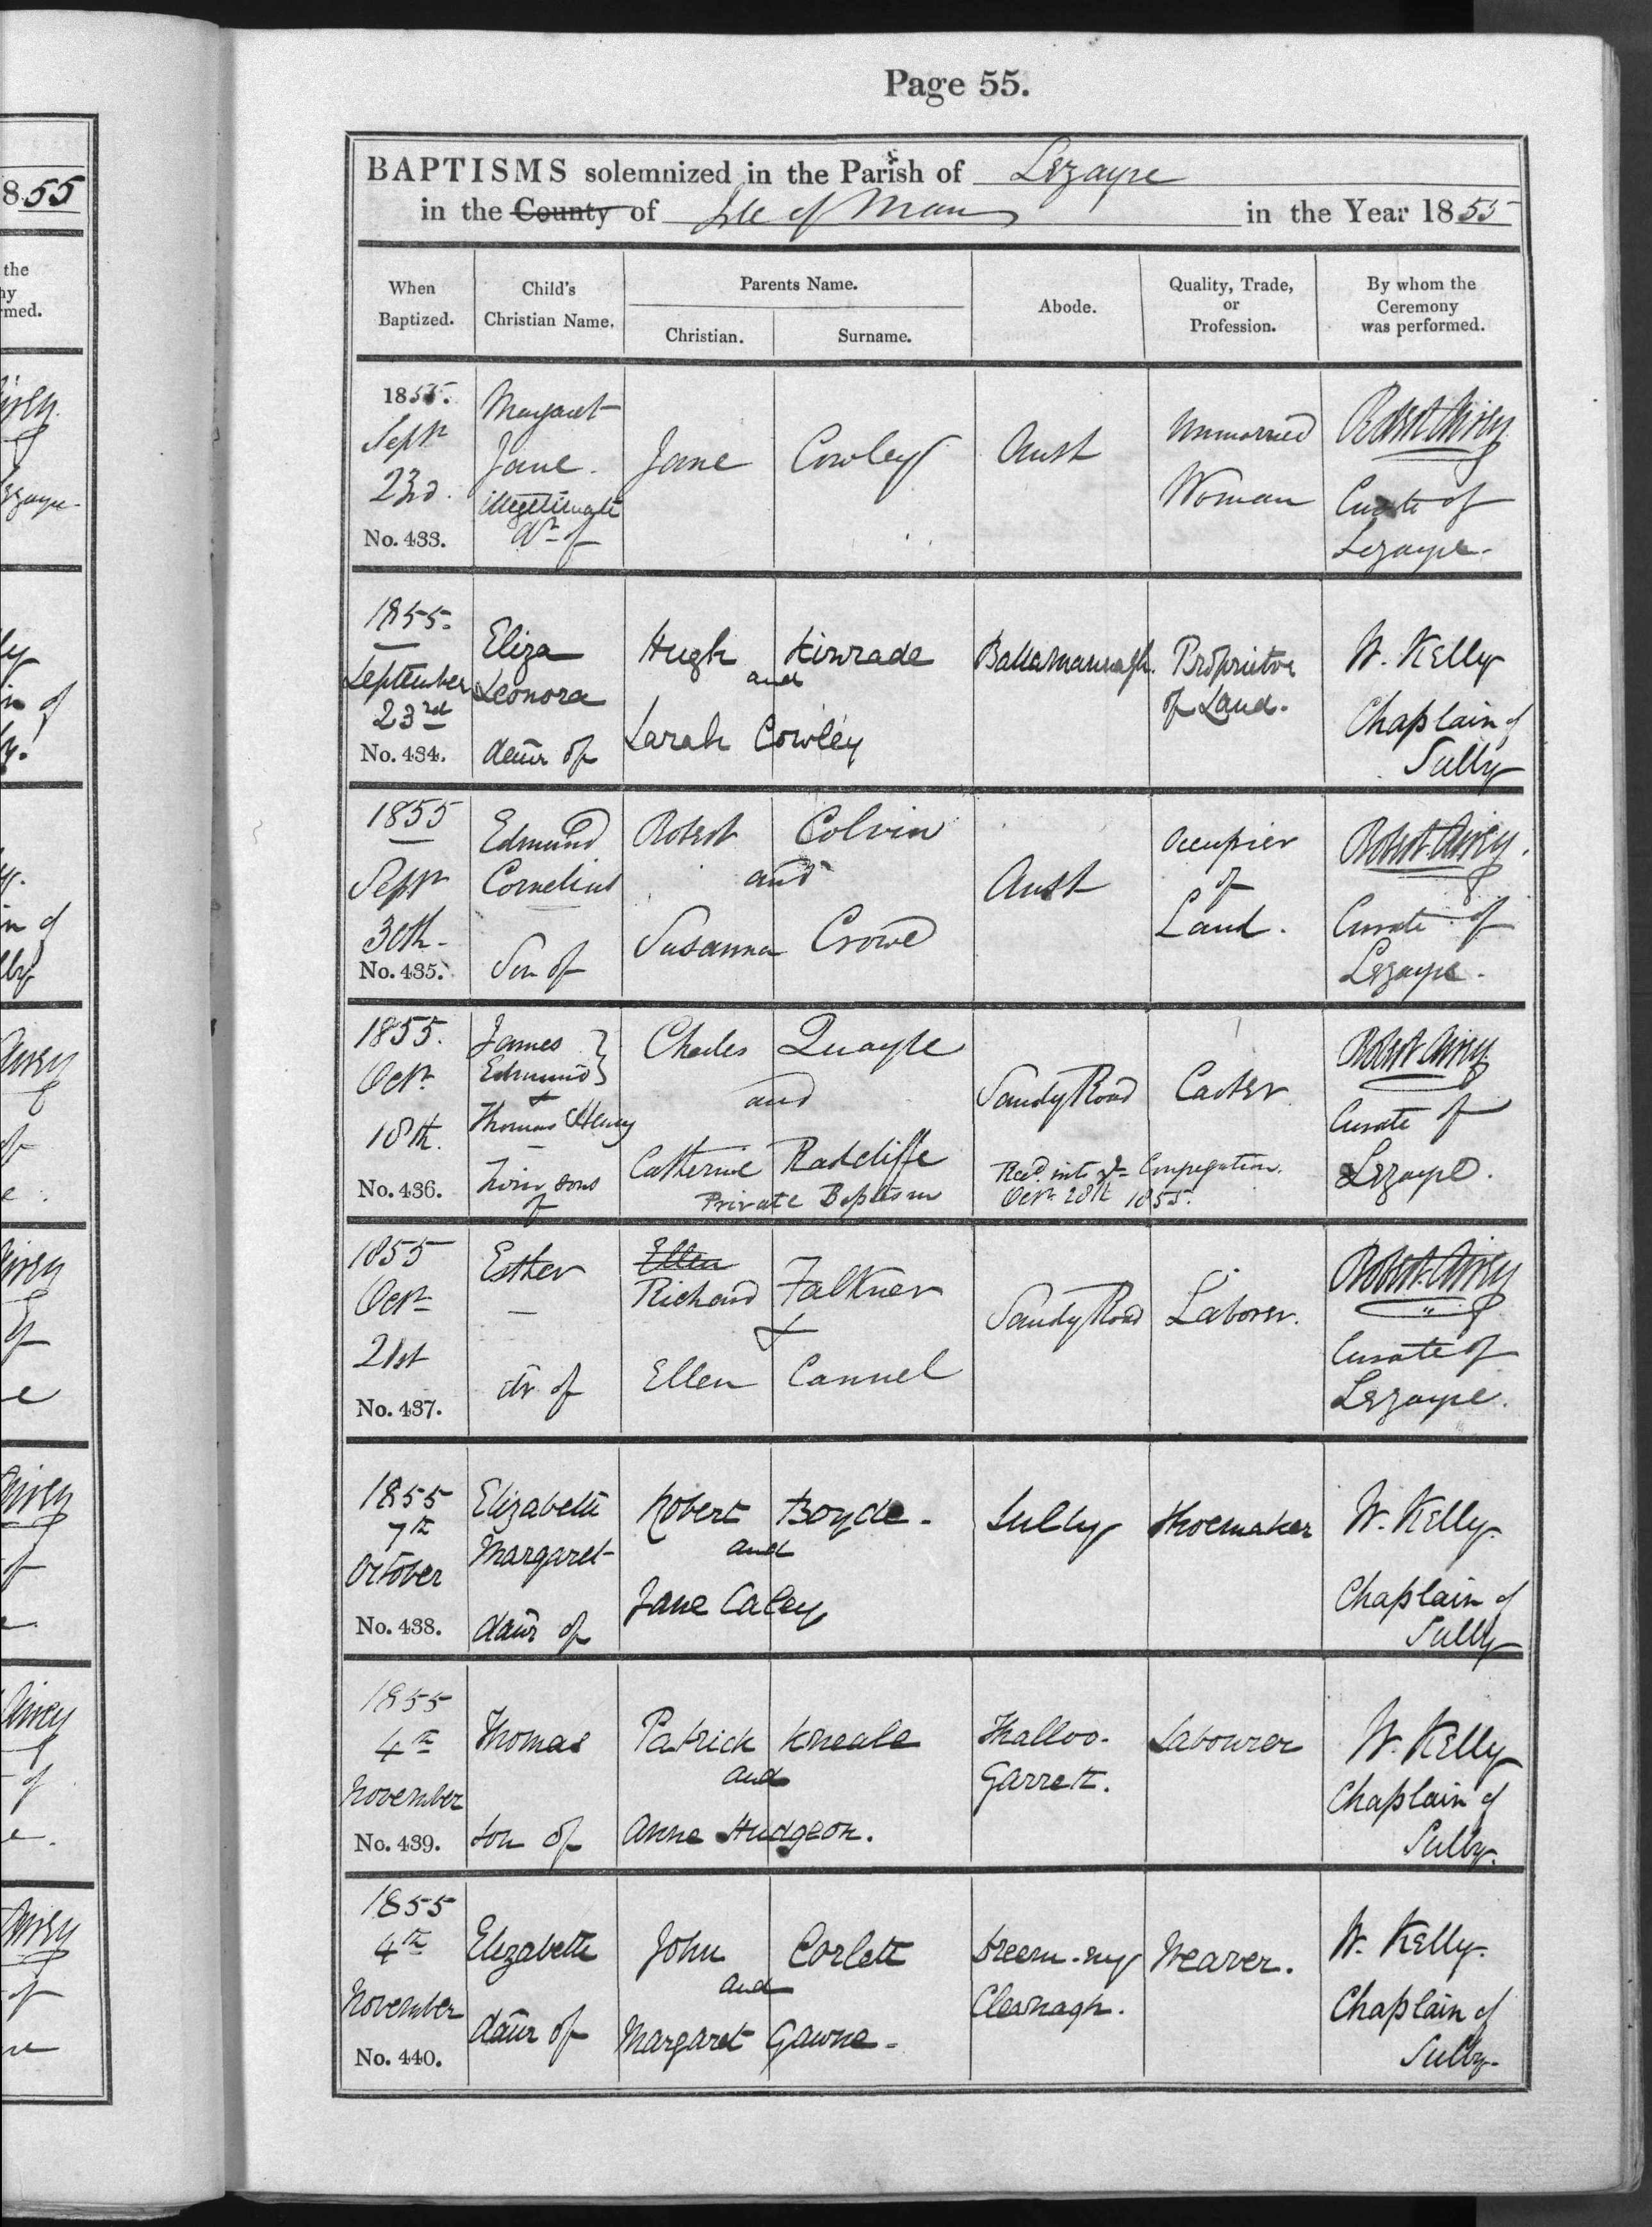 Page 55.
BAPTISMS solemnized in the Parish of Lezayre
in the County of Isle of Man in the Year 1855
When Baptized.
Child's Christian Name.
Parents Name.
Christian.
Surname.
Abode.
Quality, Trade, or Profession.
By whom the Ceremony was performed.
1855.
Septr
23rd.
No. 433.
Margaret
Jane.
illegitimate
Dr of
Jane Cowley
Aust
Unmarried
Woman
Robert Airey
Curate of
Lezayre.
1855.
September
23rd
No. 434.
Eliza
Leonora
daur of
Hugh Kinrade
and
Sarah Cowley
Ballamanaugh.
Proprietor
of Land.
W. Kelly
Chaplain of
Sulby
1855
Septr
30th.
No. 435.
Edmund
Cornelius
Son of
Robert Colvin
and
Susanna Crowe
Aust
Occupier
of
Land.
Robert Airey.
Curate of
Lezayre.
1855.
Octr
18th.
No. 436.
James
Edmund
&
Thomas Henry
Twin sons
of
Charles Quayle
and
Catherine Radcliffe
Private Baptism
Sandy Road
Recd. into ye Congregation.
Octr 28th 1855.
Carter
Robert Airey
Curate of
Lezayre.
1855
Octr
21st
No. 437.
Esther
dr of
Ellen
Richard Falkner
&
Ellen Cannel
Sandy Road
Laborer.
Robert Airey
Curate of
Lezayre.
1855
7th
October
No. 438.
Elizabeth
Margaret
daur of
Robert Boyde.
and
Jane Caley
Sulby
Shoemaker
W. Kelly.
Chaplain of
Sulby
1855
4th
November
No. 439.
Thomas
son of
Patrick Kneale
and
Anne Hudgeon.
Thalloo-
Garrett.
Labourer
W. Kelly
Chaplain of
Sulby.
1855
4th
November
No. 440.
Elizabeth
daur of
John Corlett
and
Margaret Gawne.
Weaver.
W. Kelly.
Chaplain of
Sulby.